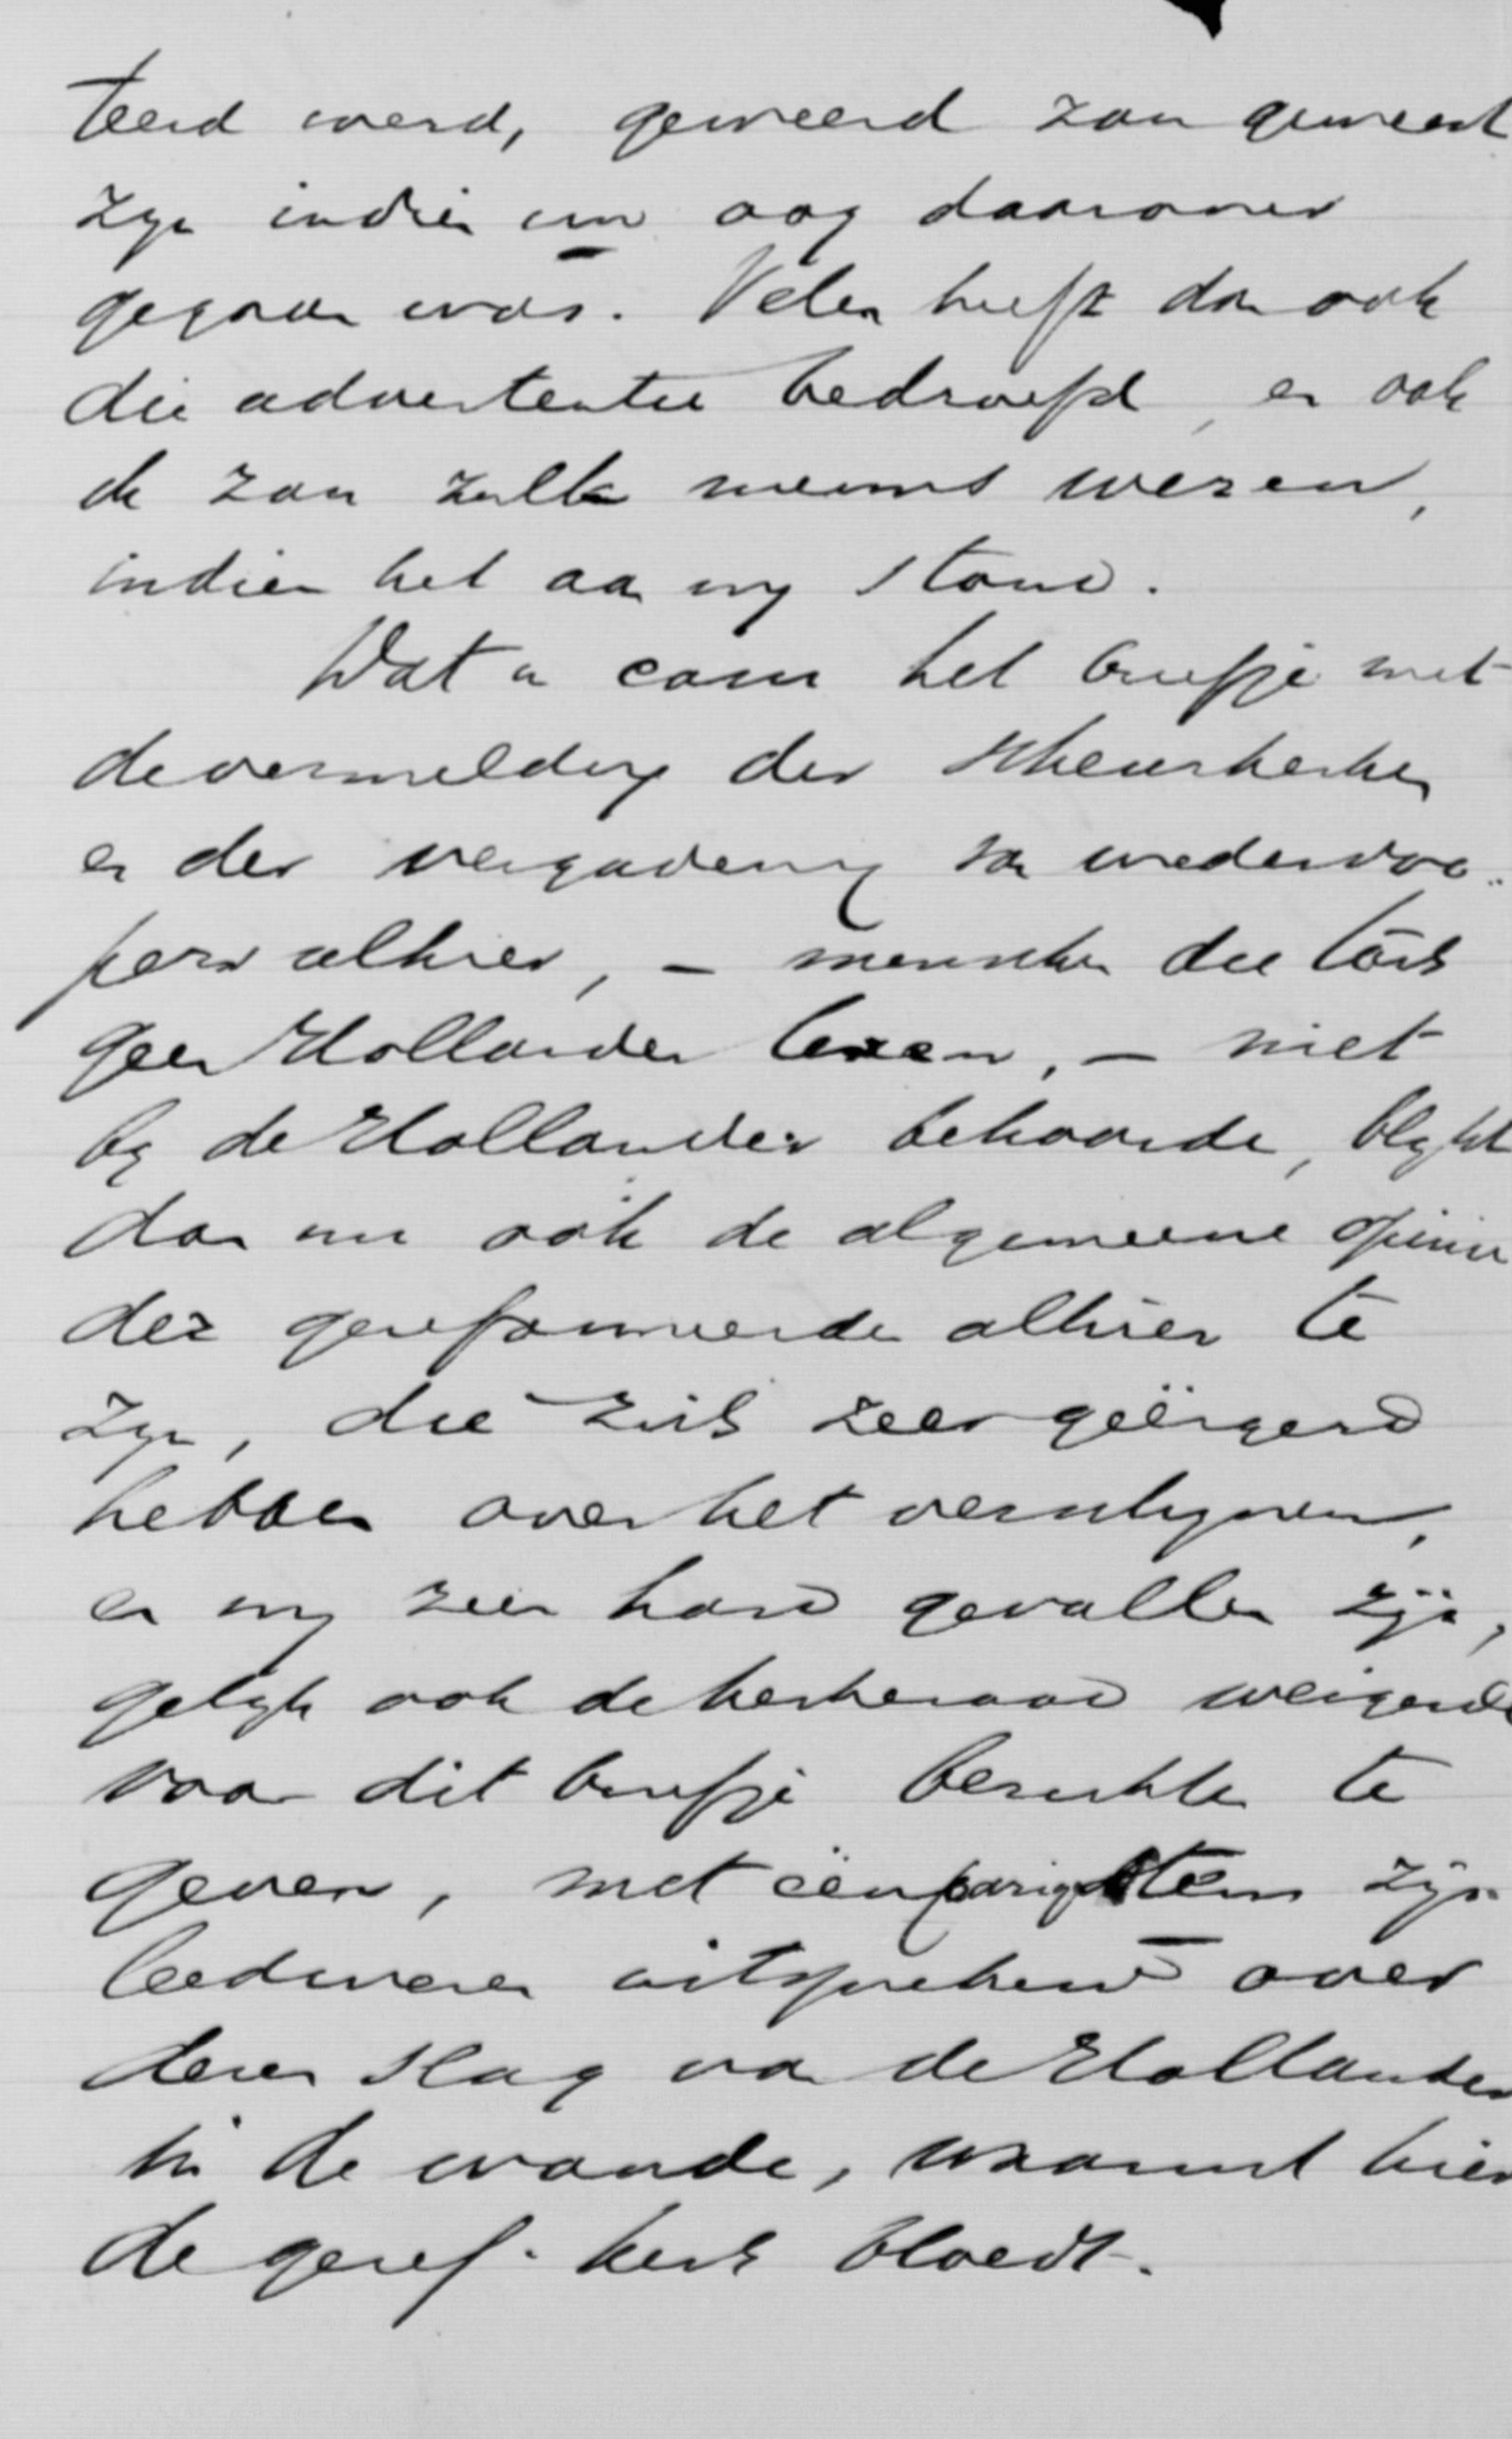 teerd werd, geweerd zou geweest
zijn indien uw oog daarover
gegaan was. Velen heeft dan ook
die advertentie bedroefd, en ook
ik zou zulke nieuws weren,
indien het aan mij stond.
Wat u caseer het briefje met
de vermelding der scheurkerken
en der vergadering van wederdoo-
pers alhier, – menschen die toch
geen Hollander lezen, – niet
bij de Hollander behoorde, blijkt
dan nu ook de algemeene opinie
der gereformeerden alhier te
zijn, die zich zeer geërgerd
hebben over het verschijnen,
en mij zeer hard gevallen zijn,
gelijk ook de kerkeraad weigerde
voor dit briefje berichten te
geven, met eenparige stem zijn
leedwezen uitsprekend over
dezen slag van de Hollander
in de wonde, waaruit hier
de geref. kerk bloedt.